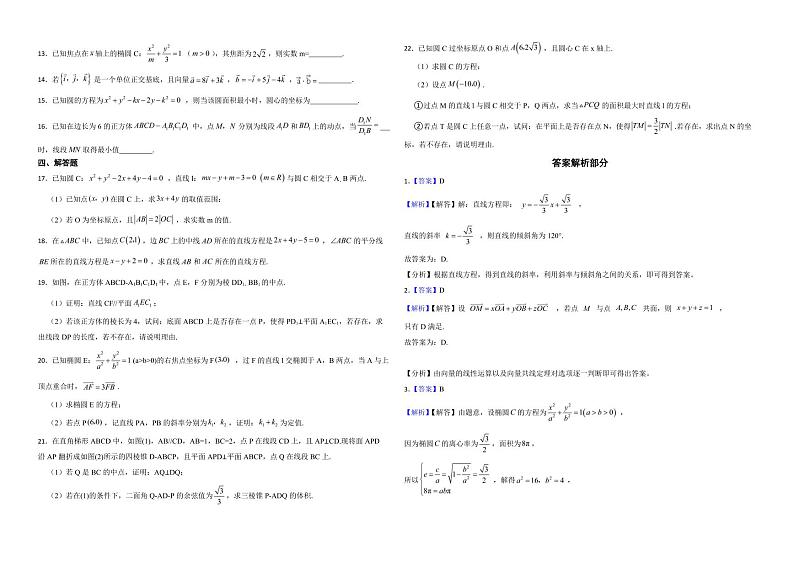 13. 已知焦点在x轴上的椭圆C：x²/m + y²/3 = 1（m>0），其焦距为2√2，则实数m=________.
14. 若{i, j, k}是一个单位正交基底，且向量a=8i+3k，b=-i+5j-4k，a·b=________.
15. 已知圆的方程为x²+y²-kx-2y-k²=0，则当该圆面积最小时，圆心的坐标为________.
16. 已知在边长为6的正方体ABCD-A₁B₁C₁D₁中，点M，N分别为线段A₁D和BD₁上的动点，当D₁N/D₁B=___
时，线段MN取得最小值________.
四、解答题
17. 已知圆C：x²+y²-2x+4y-4=0，直线l：mx-y+m-3=0 (m∈R)与圆C相交于A, B两点.
（1）已知点(x，y)在圆C上，求3x+4y的取值范围；
（2）若O为坐标原点，且|AB|=2|OC|，求实数m的值.
18. 在△ABC中，已知点C(2,1)，边BC上的中线AD所在的直线方程是2x+4y-5=0，∠ABC的平分线
BE所在的直线方程是x-y+2=0，求直线AB和AC所在的直线方程.
19. 如图，在正方体ABCD-A₁B₁C₁D₁中，点E，F分别为棱DD₁, BB₁的中点.
（1）证明：直线CF//平面A₁EC₁；
（2）若该正方体的棱长为4，试问：底面ABCD上是否存在一点P，使得PD₁⊥平面A₁EC₁，若存在，求
出线段DP的长度，若不存在，请说明理由.
20. 已知椭圆E：x²/a²+y²/b²=1 (a>b>0)的右焦点坐标为F(3,0)，过F的直线l交椭圆于A，B两点，当A与上
顶点重合时，AF=3FB.
（1）求椭圆E的方程；
（2）若点P(6,0)，记直线PA，PB的斜率分别为k₁，k₂，证明：k₁+k₂为定值.
21. 在直角梯形ABCD中，如图(1)，AB//CD，AB=1，BC=2，点P在线段CD上，且AP⊥CD.现将面APD
沿AP翻折成如图(2)所示的四棱锥D-ABCP，且平面APD⊥平面ABCP，点Q在线段BC上.
（1）若Q是BC的中点，证明：AQ⊥DQ；
（2）若在(1)的条件下，二面角Q-AD-P的余弦值为√3/3，求三棱锥P-ADQ的体积.
22. 已知圆C过坐标原点O和点A(6,2√3)，且圆心C在x轴上.
（1）求圆C的方程；
（2）设点M(-10,0).
①过点M的直线l与圆C相交于P，Q两点，求当△PCQ的面积最大时直线l的方程；
②若点T是圆C上任意一点，试问：在平面上是否存在点N，使得|TM|=3/2|TN|.若存在，求出点N的坐
标，若不存在，请说明理由.
答案解析部分
1.【答案】D
【解析】【解答】解：直线方程即： y=-√3/3 x+√3/3 ，
直线的斜率 k=-√3/3 ，则直线的倾斜角为120°.
故答案为：D.
【分析】根据直线方程，得到直线的斜率，利用斜率与倾斜角之间的关系，即可得到答案。
2.【答案】D
【解析】【解答】设 OM=xOA+yOB+zOC ，若点 M 与点 A,B,C 共面，则 x+y+z=1 ，
只有D满足.
故答案为：D.
【分析】由向量的线性运算以及向量共线定理对选项逐一判断即可得出答案。
3.【答案】B
【解析】【解答】由题意，设椭圆C的方程为x²/a²+y²/b²=1(a>b>0)，
因为椭圆C的离心率为√3/2，面积为8π，
所以{e=c/a=√(1-b²/a²)=√3/2 8π=abπ，解得a²=16，b²=4，